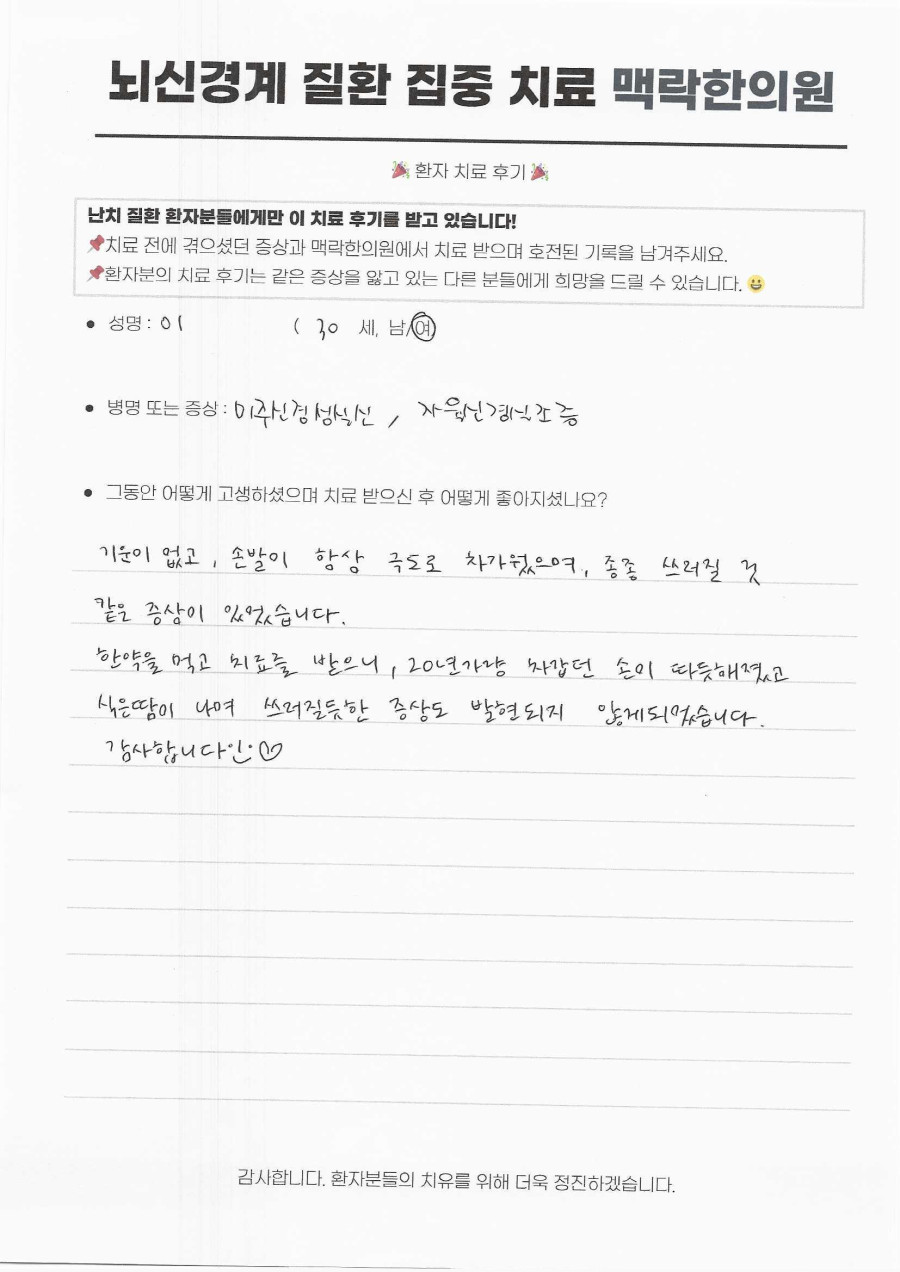 뇌신경계 질환 집중 치료 맥락한의원
🎉 환자 치료 후기 🎉
난치 질환 환자분들에게만 이 치료 후기를 받고 있습니다!
📌치료 전에 겪으셨던 증상과 맥락한의원에서 치료 받으며 호전된 기록을 남겨주세요.
📌환자분의 치료 후기는 같은 증상을 앓고 있는 다른 분들에게 희망을 드릴 수 있습니다. 😀
• 성명 : 이 ( 30 세, 남/여)
• 병명 또는 증상 : 미주신경성실신, 자율신경실조증
• 그동안 어떻게 고생하셨으며 치료 받으신 후 어떻게 좋아지셨나요?
기운이 없고, 손발이 항상 극도로 차가웠으며, 종종 쓰러질 것
같은 증상이 있었습니다.
한약을 먹고 치료를 받으니, 20년가량 차갑던 손이 따뜻해졌고
식은땀이 나며 쓰러질듯한 증상도 발현되지 않게되었습니다.
감사합니다인:♡
감사합니다. 환자분들의 치유를 위해 더욱 정진하겠습니다.